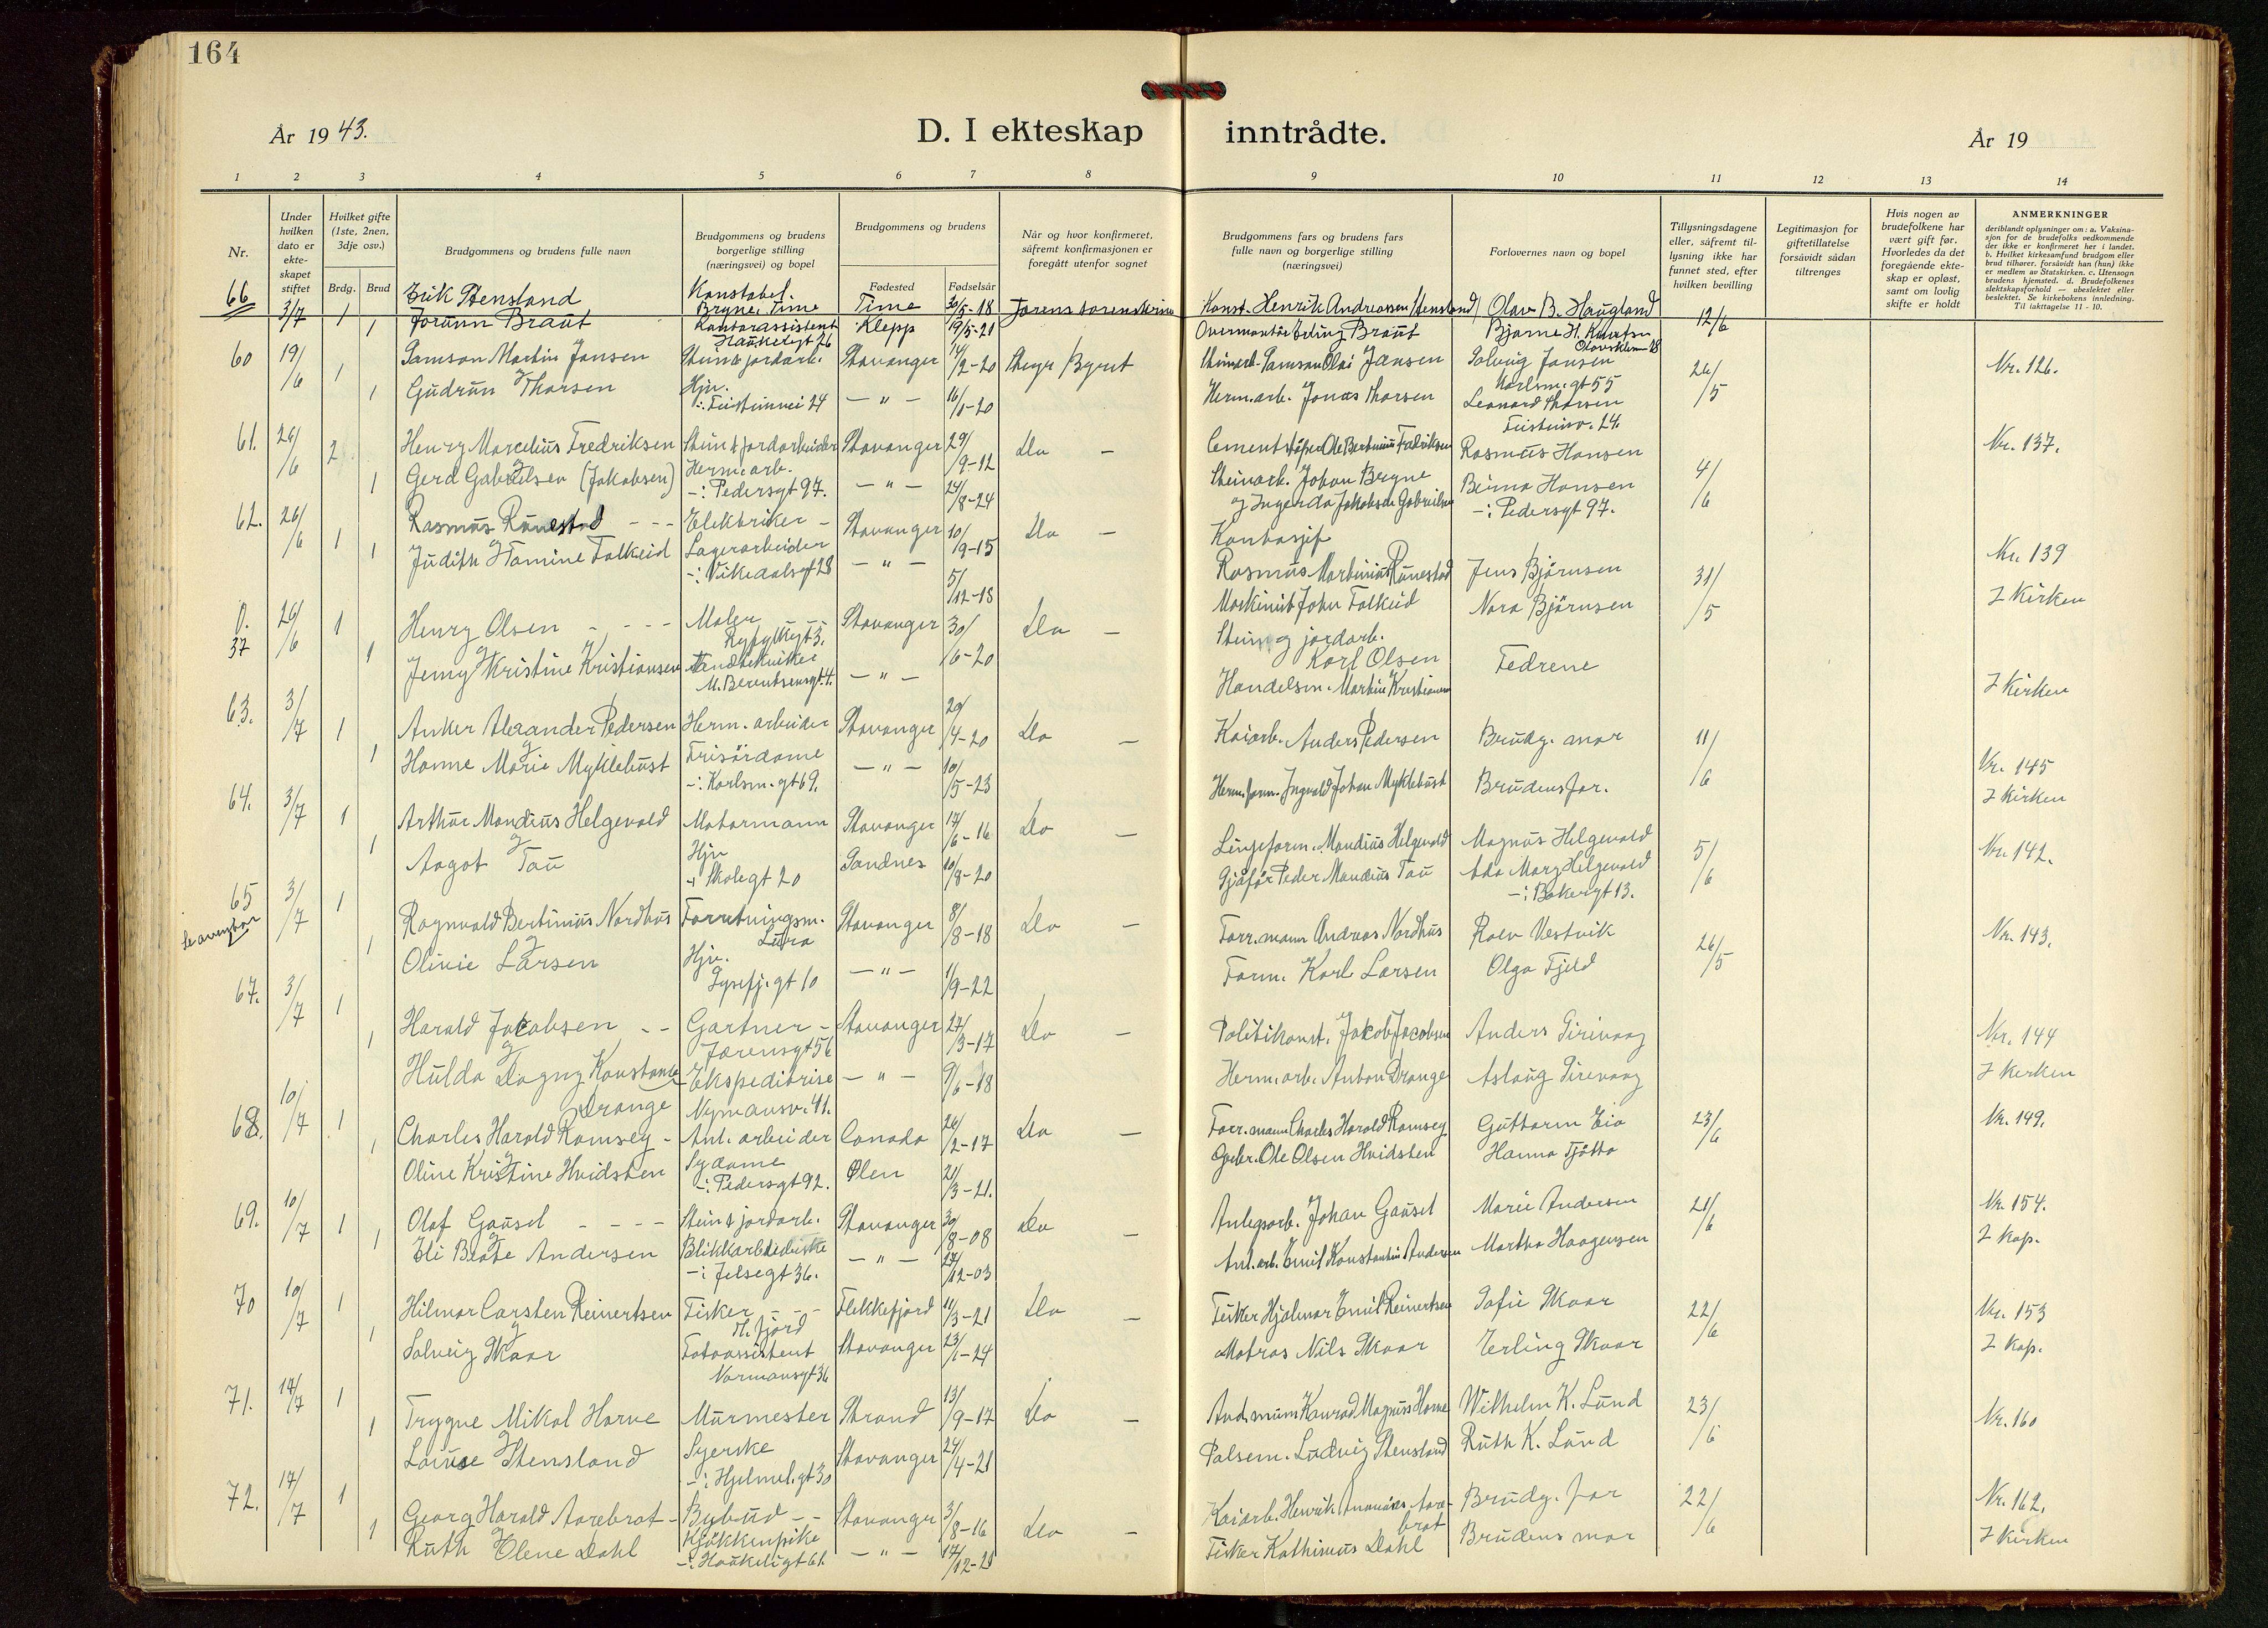 164
År 1943.
D. I ekteskap inntrådte.
År 19
1 2 3 4 5 6 7 8 9 10 11 12 13 14
Nr.
Under hvilken dato er ekteskapet stiftet
Hvilket gifte (1ste, 2nen, 3dje osv.)
Brdg. Brud
Brudgommens og brudens fulle navn
Brudgommens og brudens borgerlige stilling (næringsvei) og bopel
Brudgommens og brudens
Fødested Fødselsår
Når og hvor konfirmeret, såfremt konfirmasjonen er foregått utenfor sognet
Brudgommens fars og brudens fars fulle navn og borgerlige stilling (næringsvei)
Forlovernes navn og bopel
Tillysningsdagene eller, såfremt tillysning ikke har funnet sted, efter hvilken bevilling
Legitimasjon for giftetillatelse forsåvidt sådan tiltrenges
Hvis nogen av brudefolkene har vært gift før. Hvorledes da det foregående ekteskap er opløst, samt om lovlig skifte er holdt
ANMERKNINGER
deriblandt oplysninger om: a. Vaksinasjon for de brudefolks vedkommende der ikke er konfirmeret her i landet. b. Hvilket kirkesamfund brudgom eller brud tilhører, forsåvidt han (hun) ikke er medlem av Statskirken. c. Utensogn brudens hjemsted. d. Brudefolkenes slektskapsforhold — ubeslektet eller beslektet. Se kirkebokens innledning. Til iakttagelse 11 - 10.
66 3/7 1 Erik Stensland Konstabel. Bryne, Time Time 30/5-18 Konst. Henrik Andreassen Stensland Olav B. Haugland 12/6
1 Jorunn Braut Kontorassistent Haukeligt 26 Klepp 19/5-21 Overmontør Erling Braut Bjarne H.
60 19/6 1 Samson Martin Jansen Stein & jordarb. Stavanger 14/2-20 Samson Olai Jansen Solveig Jansen Karlsm. gt 55 26/5 Nr. 126.
og
1 Gudrun Thorsen Hjv. -:- 24 — " — 16/1-20 Herm. arb. Jonas Thorsen Leonard Thorsen 24.
61. 26/6 2 Henry Marcelius Fredriksen Stein & jordarbeider Stavanger 29/9-12 Do — Ole Bertinius Fredriksen Rasmus Hansen 4/6 Nr. 137.
og
1 Gerd Gabrielsen (Jakobsen) Herm. arb. -: Pedersgt 97. — " — 24/8-24 Steinarb. Johan Bryne Hansen
og Ingerda Jakobsen Gabrielsen -: Pedersgt 97.
62. 26/6 1 Rasmus Runestad - - - Elektriker - Stavanger 10/9-15 Do — Kontorsjef Rasmus Martinius Runestad Jens Björnsen 31/5 Nr. 139
og
1 Judith Tamine Falkeid Lagerarbeider -: Vikedalsgt 28 — " — 5/12-18 Maskinist John Falkeid Nora Björnsen I Kirken
0. 37 26/6 1 Henry Olsen - - - - Maler Ryfylkegt 3. Stavanger 30/6-20 Do — Stein og jordarb. Karl Olsen Fedrene
og
1 Jenny Kristine Kristiansen M. Berentsensgt. 4. — " — Handelsm. Martin Kristiansen I Kirken
63. 3/7 1 Anker Alexander Pedersen Herm. arbeider Stavanger 29/4-20 Do — Kaiarb. Anders Pedersen Brudg. mor 11/6 Nr. 145
og
1 Hanne Marie Myklebust Frisördame -: Karlsm. gt 69. — " — 10/5-23 Herm. form. Ingvald Johan Myklebust Brudens far. I Kirken
64. 3/7 1 Arthur Mandius Helgevold Motormann Stavanger 17/6-16 Do — Linjeform. Mandius Helgevold Magnus Helgevold 5/6 Nr. 142.
og
1 Aagot Tau Hjv -: Skolegt 20 Sandnes 10/8-20 Sjåfør Peder Mandius Tau Ada Mary Helgevold -: Bakergt 13.
65 3/7 1 Ragnvald Bertinius Nordhus Forretningsm. Lura Stavanger 8/8-18 Do — Forr. mann Andreas Nordhus Rolv Vestvik 26/5 Nr. 143.
og
1 Olivie Larsen Hjv. Lysefj. gt 10 — " — 1/9-22 Form. Karl Larsen Olga Fjeld
67. 3/7 1 Harald Jakobsen - - Gartner - Jærensgt 56 Stavanger 27/3-17 Do — Politikonst. Jakob Jacobsen Anders Sirevaag Nr. 144
og
1 Hulda Dagny Konstanse Drange Ekspeditrise Nymansv. 41. — " — 9/6-18 Herm. arb. Anton Drange Aslaug Sirevaag I Kirken
68. 10/7 1 Charles Harold Ramsey - Anl. arbeider Canada 26/2-17 Do — Forr. mann Charles Harold Ramsey Guttorm Eia 23/6 Nr. 149.
og
1 Oline Kristine Hvidsten Sydame -: Pedersgt 92. Ølen 21/3-21. Gbr. Ole Olsen Hvidsten Hanna Tjötta
69. 10/7 1 Olaf Gausel - - - - Stein & jordarb. Stavanger 30/8-08 Do — Anlegsarb. Johan Gausel Marie Andersen 21/6 Nr. 154.
og
1 Eli Beate Andersen -: Jelsegt 36. — " — 27/12-03 Anl. arb. Emil Konstantin Andersen Martha Haagensen I Kap.
70 10/7 1 Hilmar Carsten Reinertsen Fisker - - - Flekkefjord 11/3-21 Do — Fisker Hjalmar Emil Reinertsen Sofie Skaar 22/6 Nr. 153
og
1 Solveig Skaar Fotoassistent Normansgt 36 Stavanger 23/1-24 Matros Nils Skaar Erling Skaar I Kap.
71. 17/7 1 Trygve Mikal Horve Murmester Strand 13/9-17 Do — Konrad Magnus Horve Wilhelm K. Lund 23/6 Nr. 160
og
1 Louise Stensland Syerske -: Hjelmel. gt 30 Stavanger 24/4-21 Ludvig Stensland Ruth K. Lund
72. 17/7 1 Georg Harald Aarebrot - Bybud - - Stavanger 3/8-16 Do — Kaiarb. Henrik Aarebrot Brudg. far 22/6 Nr. 162.
og
1 Ruth Elene Dahl Kjökkenpike -: Haukeligt 61. — " — 17/12-21 Fisker Kathinius Dahl Brudens mor I Kirken